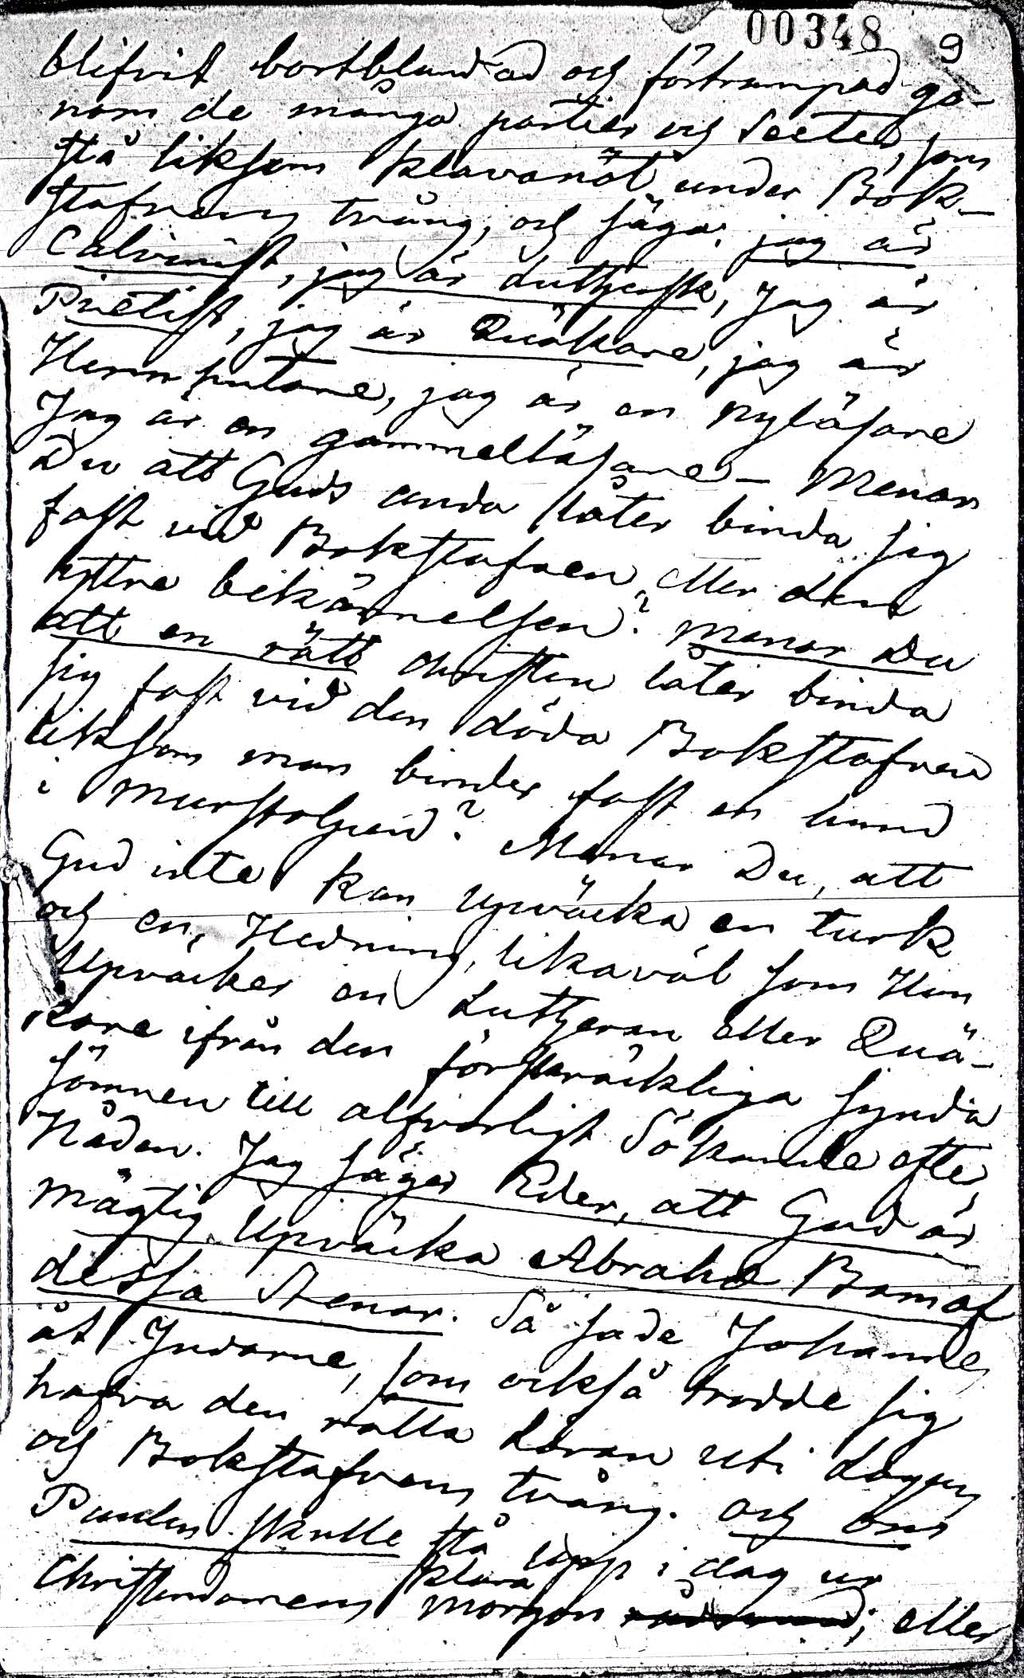 00348 9
blifvit bortblandad och förtrampad ge-
nom de många partier och Secter, som
stå liksom klavanöt under Bok-
stafvens tvång, och säga: jag är
Calvinist, jag är Luthersk, jag är
Pietist, jag är Quäkare, jag är
Herrnhutare, jag är en nyläsare
Jag är en gammelläsare – Menar
Du att Guds anda låter binda sig
fast vid Bokstafven eller den
yttre bekännelsen? Menar Du
att en rätt christen låter binda
sig fast vid den döda Bokstafven
liksom man binder fast en hund
i murstolpen? Menar Du, att
Gud inte kan Upväcka en turk
och en Hedning, likaväl som Han
Upväcker en Lutheran eller Quä-
kare ifrån den förskräckliga synda
sömnen till alfvarligt Sökande efter
Nåden. Jag säger Eder, att Gud är
mägtig Upväcka Abrahæ Barn af
dessa Stenar. Så sade Johannes
åt Judarne, som också trodde sig
hafva den rätta Läran uti Lagens
och Bokstafvens tvång. och om
Paulus skulle stå upp i dag ur
Christendomens klara morgon; eller